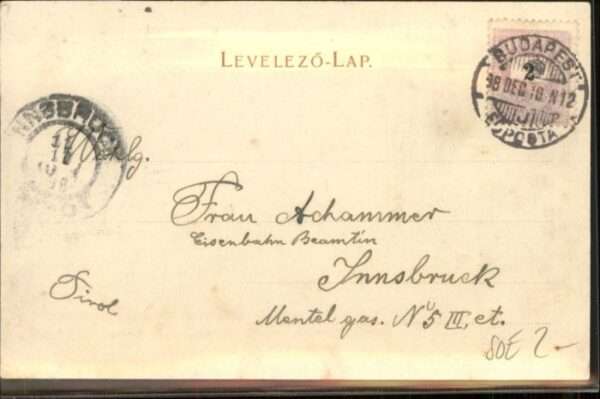 LEVELEZŐ-LAP.
BUDAPEST
2
98 DEC 16 N12
FŐPOSTA
INNSBRUCK
Wohlg.
Frau Achammer
Eisenbahn Beamtin
Innsbruck
Tirol
Mentel gas. No 5 III, et.
80E 2-